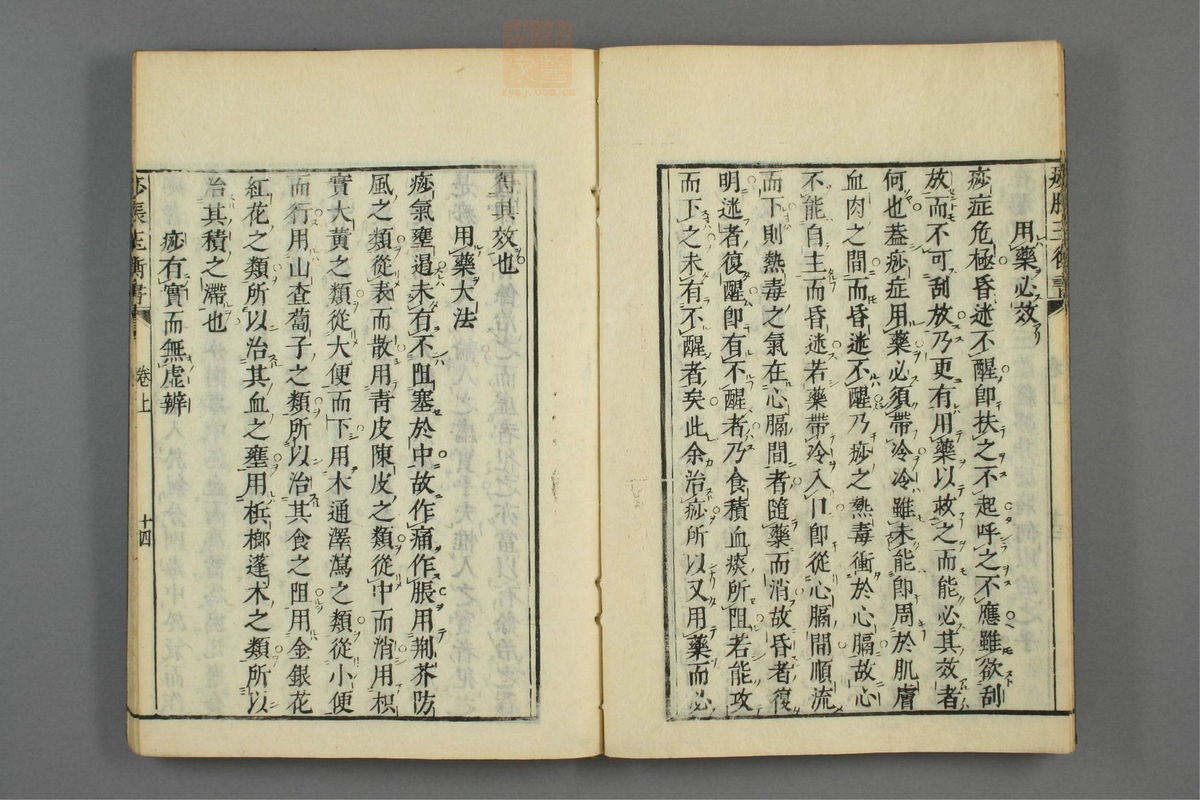 用藥必效
痧症危極昏迷不醒卽扶之不起呼之不應雖欲刮
放而不可刮放乃更有用藥以救之而能必其效者
何也蓋痧症用藥必須帶冷冷雖未能卽周於肌膚
血肉之間而昏迷不醒乃痧之熱毒衝於心膈故心
不能自主而昏迷若藥帶冷入口卽從心膈間順流
而下則熱毒之氣在心膈間者隨藥而消故昏者復
明迷者復醒卽有不醒者乃食積血痰所阻若能攻
而下之未有不醒者矣此余治痧所以又用藥而必
得其效也
用藥大法
痧氣壅遏未有不阻塞於中故作痛作脹用荆芥防
風之類從表而散用青皮陳皮之類從中而消用枳
實大黃之類從大便而下用木通澤瀉之類從小便
而行用山查蔔子之類所以治其食之阻用金銀花
紅花之類所以治其血之壅用檳榔蓬木之類所以
治其積之滯也
痧有實而無虛辨
卷上
十四